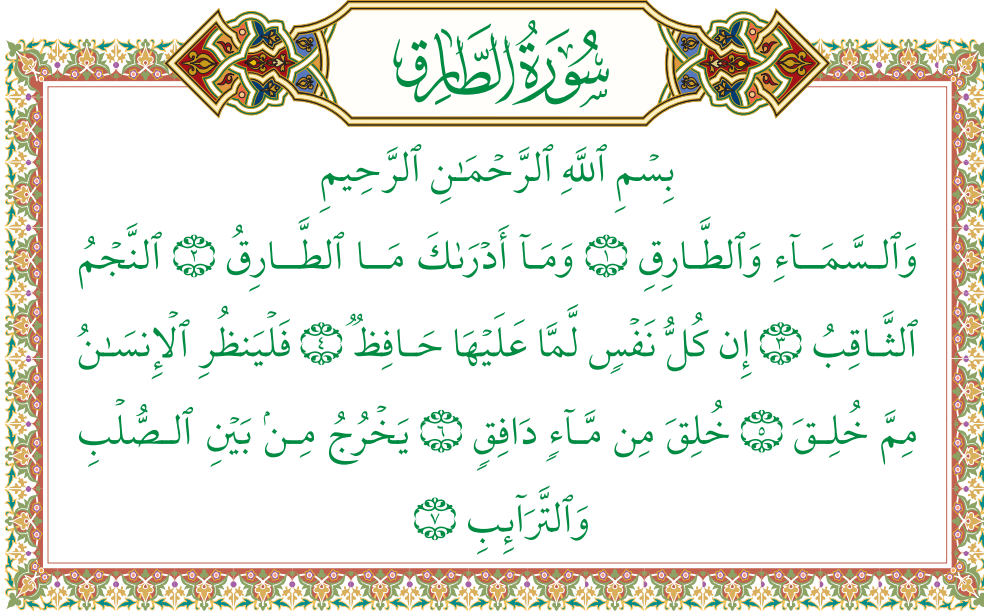 سُورَةُ الطَّارِقِ
بِسۡمِ ٱللَّهِ ٱلرَّحۡمَـٰنِ ٱلرَّحِيمِ
وَٱلسَّمَآءِ وَٱلطَّارِقِ ١ وَمَآ أَدۡرَىٰكَ مَا ٱلطَّارِقُ ٢ ٱلنَّجۡمُ
ٱلثَّاقِبُ ٣ إِن كُلُّ نَفۡسٖ لَّمَّا عَلَيۡهَا حَافِظٞ ٤ فَلۡيَنظُرِ ٱلۡإِنسَـٰنُ
مِمَّ خُلِقَ ٥ خُلِقَ مِن مَّآءٖ دَافِقٖ ٦ يَخۡرُجُ مِنۢ بَيۡنِ ٱلصُّلۡبِ
وَٱلتَّرَآئِبِ ٧